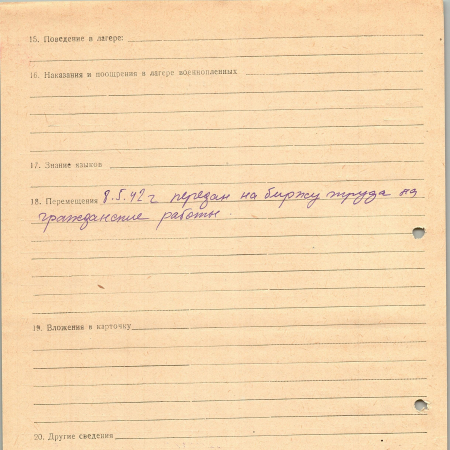 15. Поведение в лагере:
16. Наказания и поощрения в лагере военнопленных
17. Знание языков
18. Перемещения 8.5.42 г передан на биржу труда на
гражданские работы
19. Вложения в карточку
20. Другие сведения